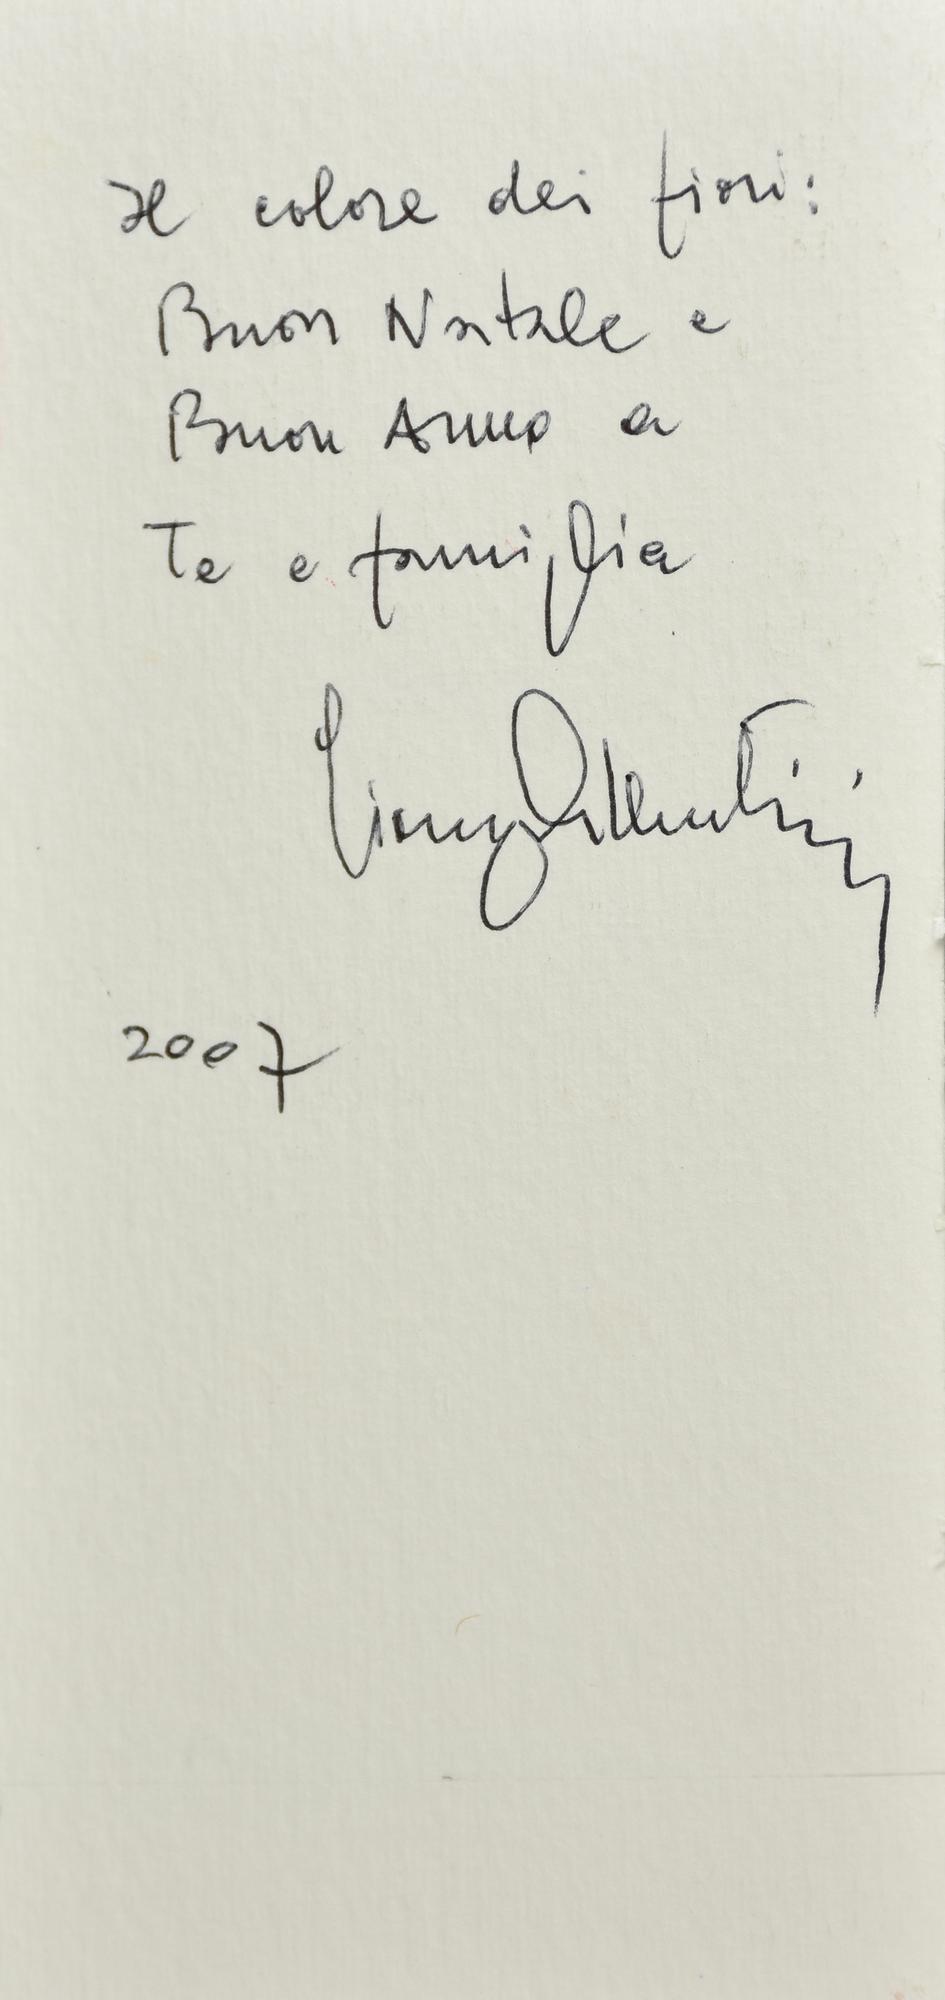 Il colore dei fiori:
Buon Natale e
Buon Anno a
Te e famiglia
2007